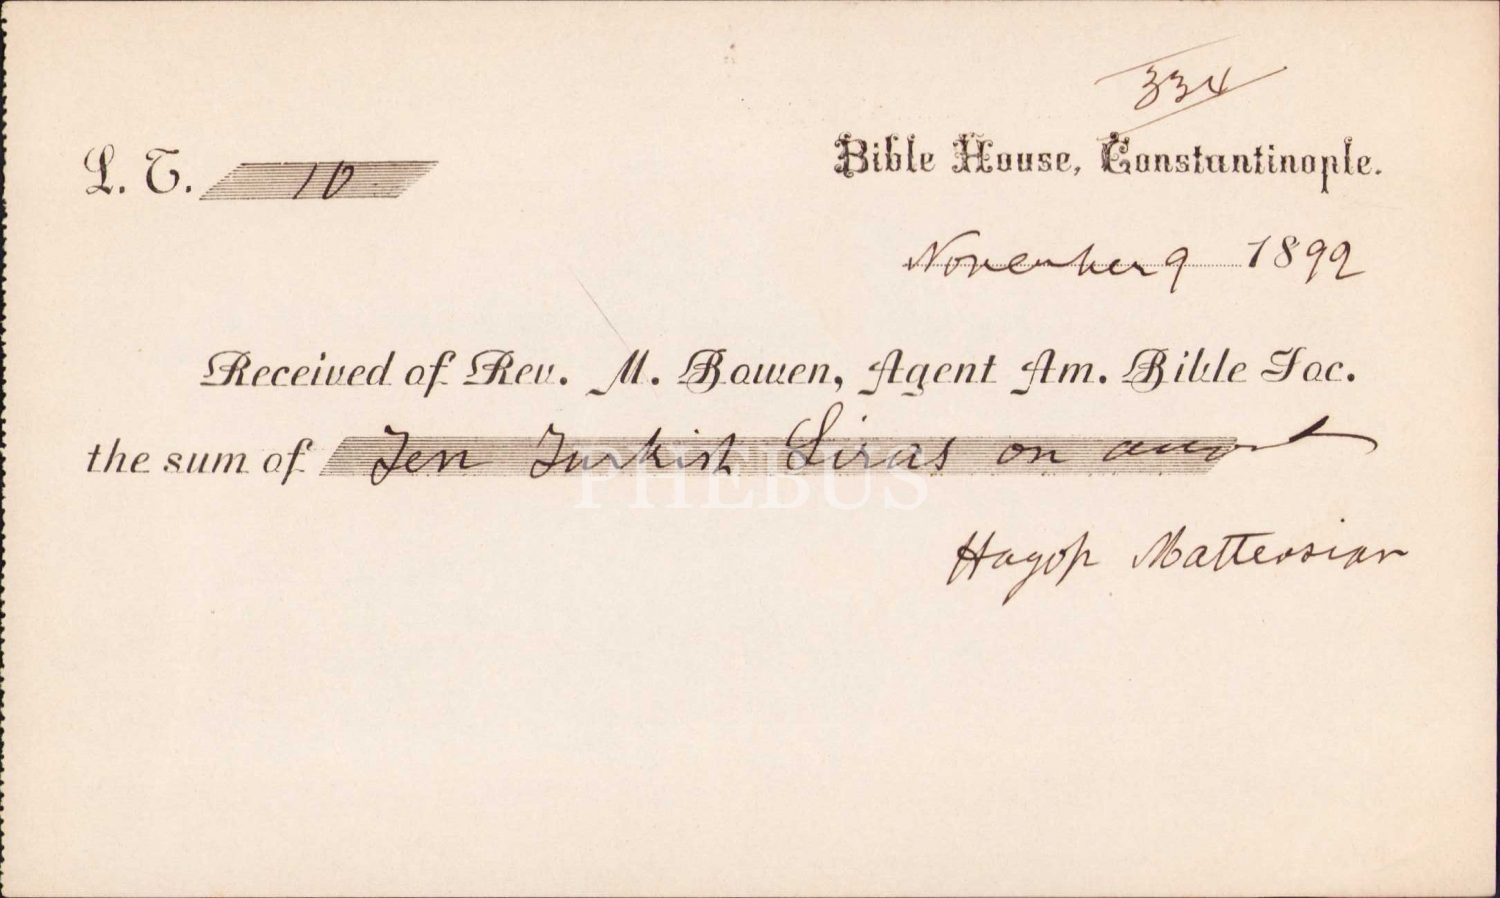 334
L. T. 10
Bible House, Constantinople.
November 9 1892
Received of Rev. M. Bowen, Agent Am. Bible Soc.
the sum of Ten Turkish Liras on
PHEBUS
Hagop Matteosian